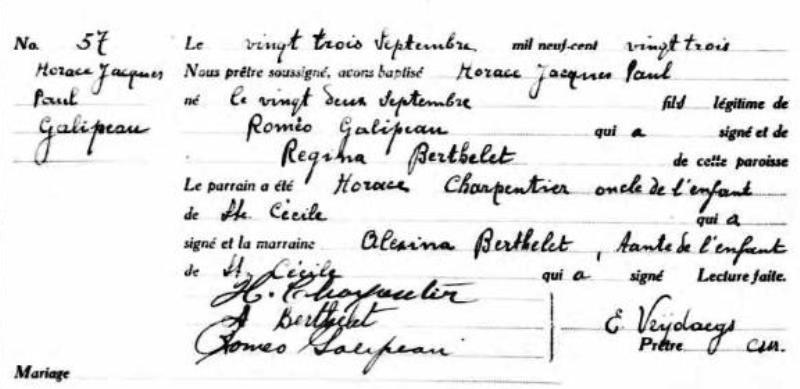 No. 57 Le vingt trois Septembre mil neuf-cent vingt trois
Horace Jacques Nous prêtre soussigné, avons baptisé Horace Jacques Paul
Paul né le vingt deux Septembre fils légitime de
Galipeau Roméo Galipeau qui a signé et de
Regina Berthelet de cette paroisse
Le parrain a été Horace Charpentier oncle de l'enfant
de Ste Cécile qui a
signé et la marraine Alexina Berthelet, tante de l'enfant
de St. Cécile qui a signé Lecture faite.
H. Charpentier
A Berthelet E Vrijdaegs
Romeo Galipeau Prêtre
Mariage